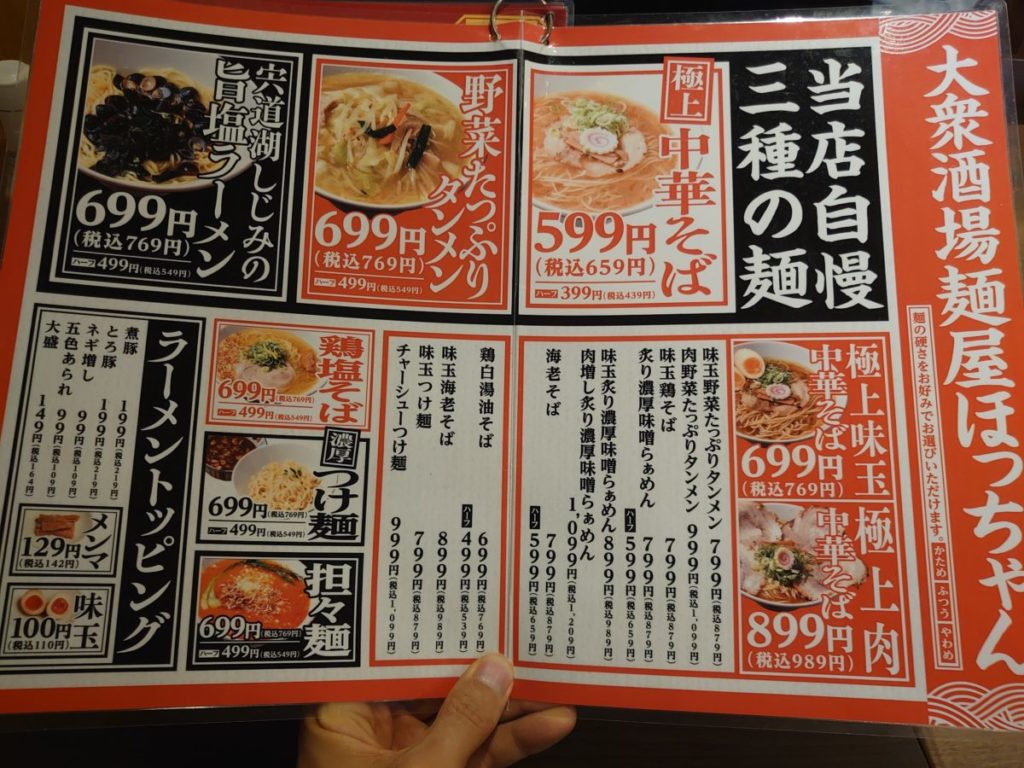 大衆酒場麺屋ほっちゃん
麺の硬さをお好みでお選びいただけます。
かため
ふつう
やわめ
当店自慢
三種の麺
極上
中華そば
599円
(税込659円)
ハーフ 399円(税込439円)
野菜たっぷり
タンメン
699円
(税込769円)
ハーフ 499円(税込549円)
宍道湖しじみの
旨塩ラーメン
699円
(税込769円)
ハーフ 499円(税込549円)
極上味玉
中華そば
699円
(税込769円)
極上肉
中華そば
899円
(税込989円)
味玉野菜たっぷりタンメン 799円(税込879円)
肉野菜たっぷりタンメン 999円(税込1,099円)
味玉鶏そば 799円(税込879円)
炙り濃厚味噌らぁめん 799円(税込879円)
ハーフ 599円(税込659円)
味玉炙り濃厚味噌らぁめん 899円(税込989円)
肉増し炙り濃厚味噌らぁめん
1,099円(税込1,209円)
海老そば 799円(税込879円)
ハーフ 599円(税込659円)
鶏白湯油そば 699円(税込769円)
ハーフ 499円(税込539円)
味玉海老そば 899円(税込989円)
味玉つけ麺 799円(税込879円)
チャーシューつけ麺 999円(税込1,099円)
鶏塩そば
699円(税込769円)
ハーフ 499円(税込549円)
濃厚
つけ麺
699円(税込769円)
ハーフ 499円(税込549円)
担々麺
699円(税込769円)
ハーフ 499円(税込549円)
ラーメントッピング
煮豚 199円(税込219円)
とろ豚 199円(税込219円)
ネギ増し 99円(税込109円)
五色あられ 99円(税込109円)
大盛 149円(税込164円)
メンマ
129円
(税込142円)
味玉
100円
(税込110円)